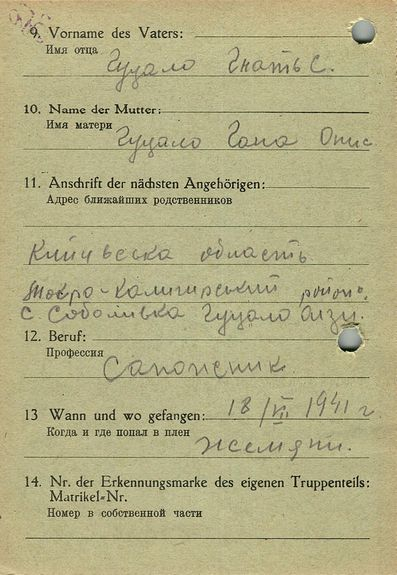 9. Vorname des Vaters:
Имя отца
Гуцало Гнать С.
10. Name der Mutter:
Имя матери
Гуцало Гана Опис
11. Anschrift der nächsten Angehörigen:
Адрес ближайших родственников
область
Мокро-Калигирський район.
с. Соболивка Гуцало
12. Beruf:
Профессия
Сапожник
13 Wann und wo gefangen: 18/VII 1941 г
Когда и где попал в плен
14. Nr. der Erkennungsmarke des eigenen Truppenteils:
Matrikel-Nr.
Номер в собственной части